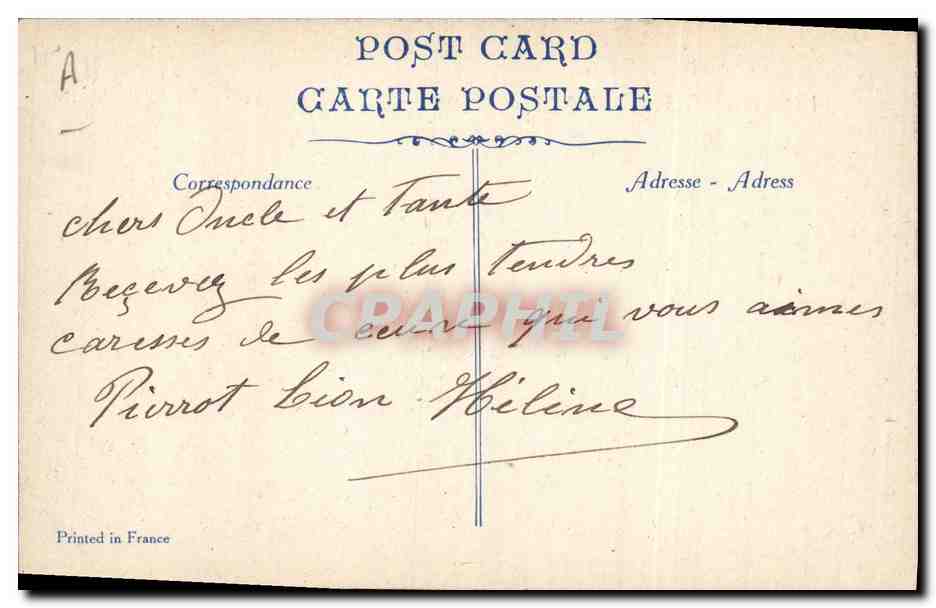 A
POST CARD
CARTE POSTALE
Correspondance
Adresse - Address
chers Oncle et Tante
Reçevez les plus tendres
caresses de ceux qui vous aimes
Pierrot Léon Hélène
CRAPHIL
Printed in France